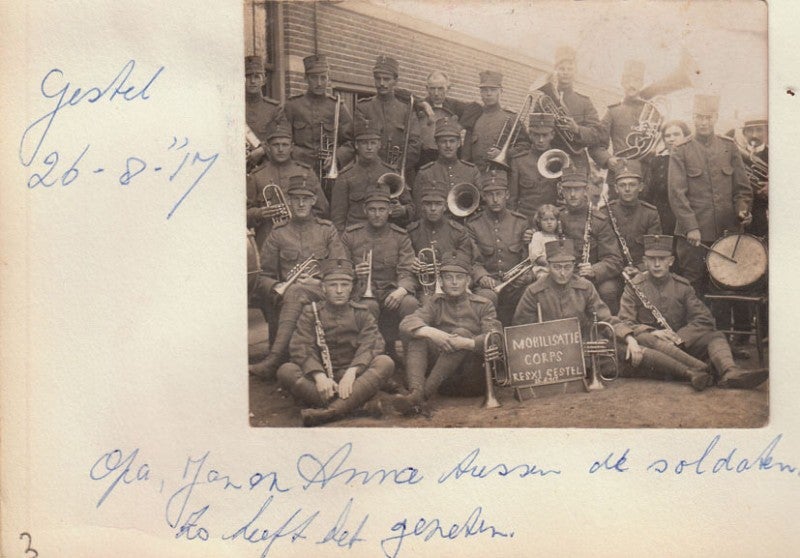 Gestel
26-8-"17
MOBILISATIE
CORPS
RESXI GESTEL
Opa, Jan en Anna tussen de soldaten.
Zo heeft het gezeten.
3